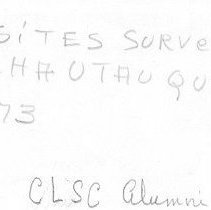 SITES SURVE
CHAUTAUQU
73
CLSC Alumni